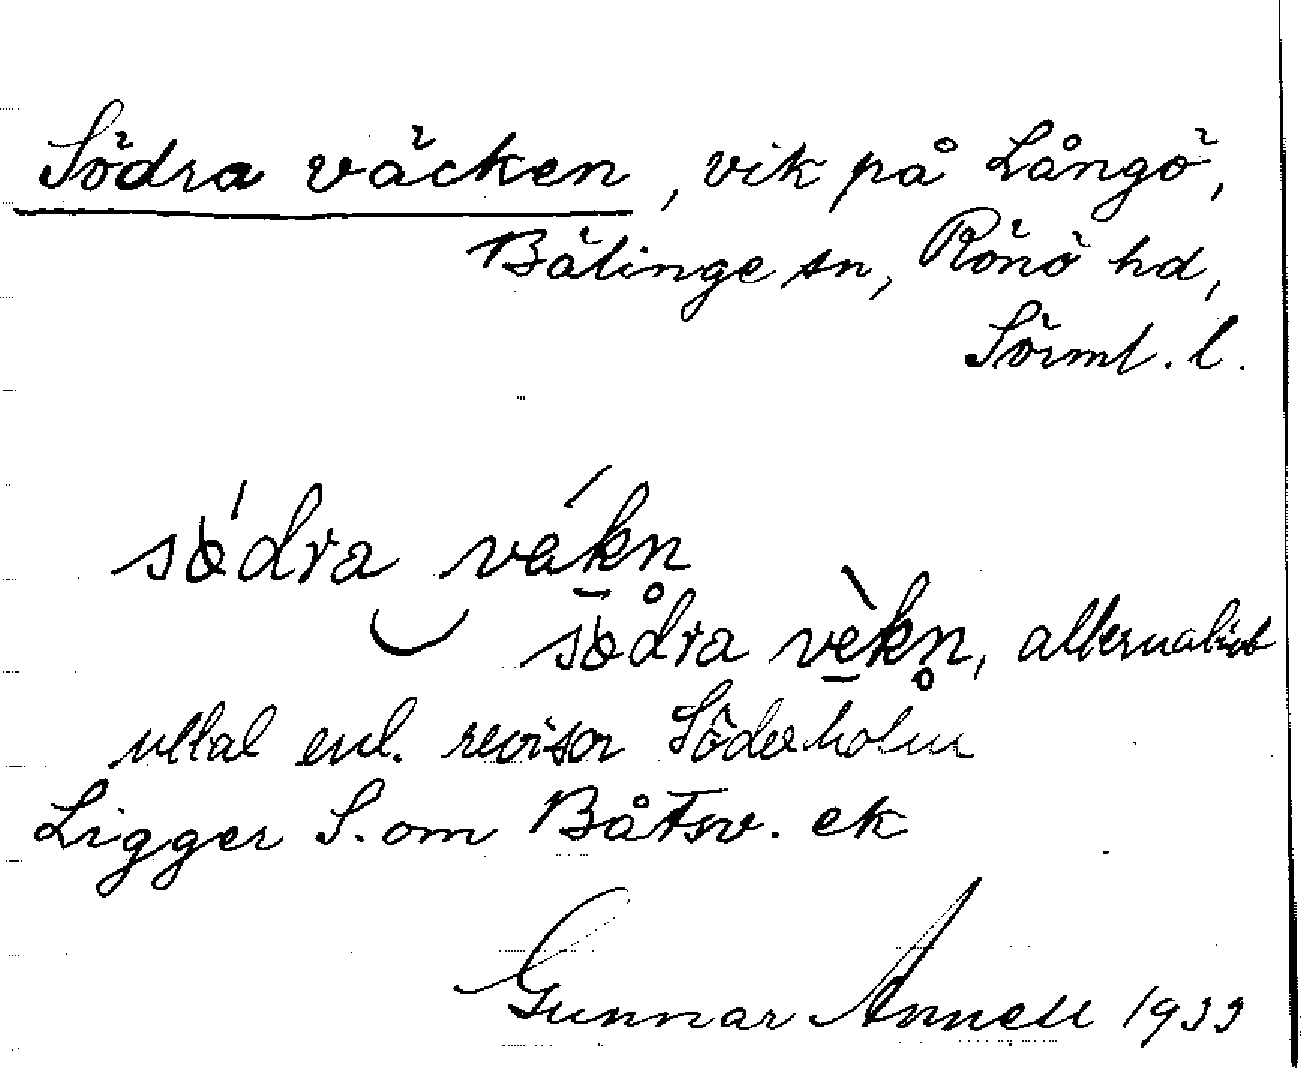 Södra väcken, vik på Långö,
Bälinge sn, Rönö hd,
Sörml. l.
södra väkn̥
södra vèkn̥, alternativt
uttal enl. revisor Söderholm
Ligger S. om Båtsv. ek
Gunnar Annell 1933